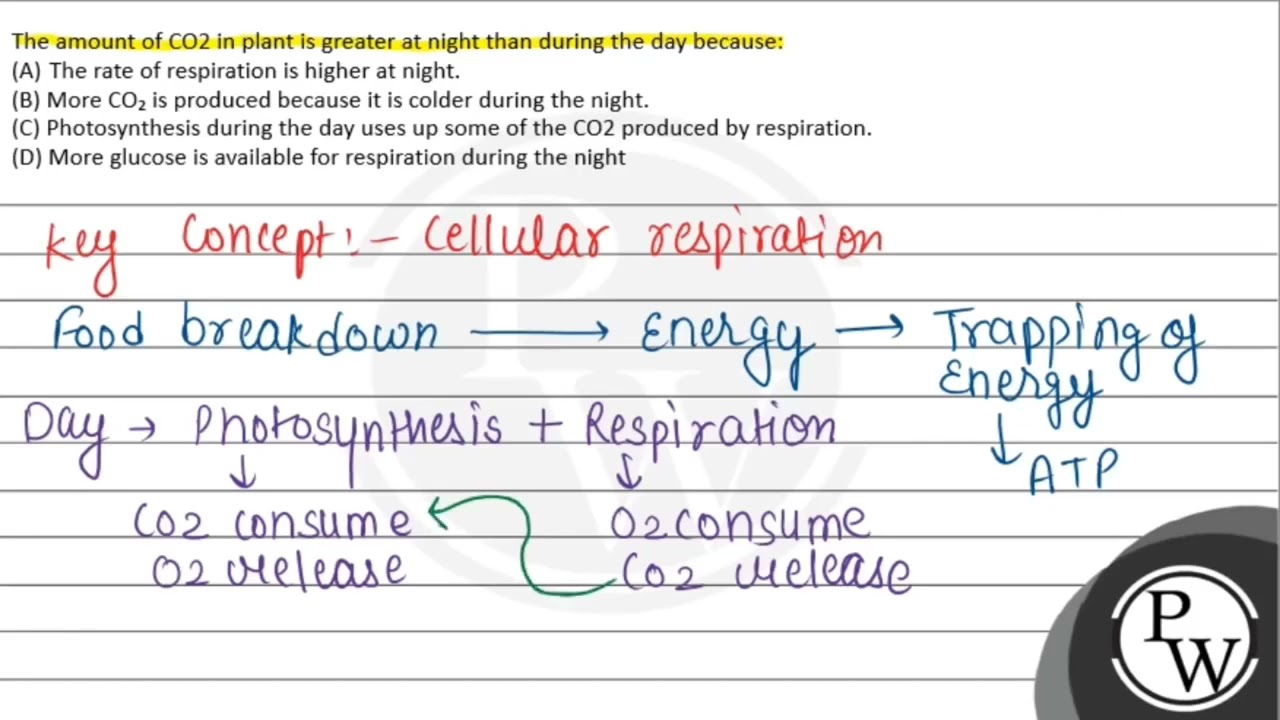 The amount of CO2 in plant is greater at night than during the day because:
(A) The rate of respiration is higher at night.
(B) More CO₂ is produced because it is colder during the night.
(C) Photosynthesis during the day uses up some of the CO2 produced by respiration.
(D) More glucose is available for respiration during the night
Key Concept:- Cellular respiration
Food breakdown → Energy → Trapping of
Energy
↓
ATP
Day → Photosynthesis + Respiration
↓ ↓
CO2 consume O2 consume
O2 release CO2 release
P
W
P
W